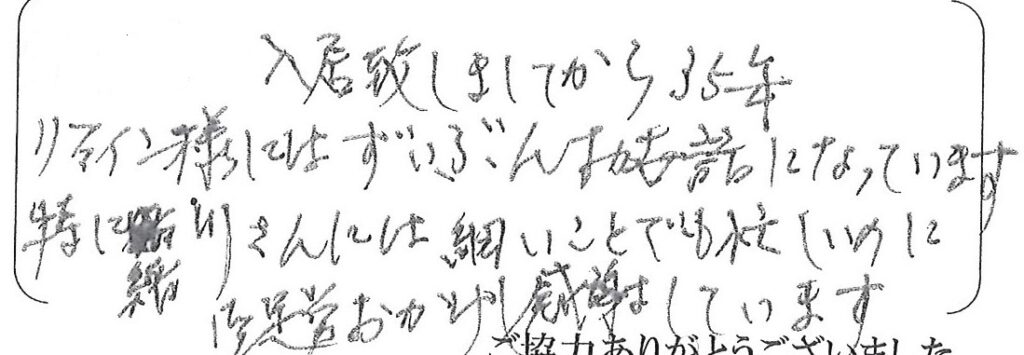 入居致しましてから35年
リアイン様にはずいぶんお世話になっています
特に 切りさんには細いことでも忙しいのに
御足労おかけし感謝しています
ご協力ありがとうございました